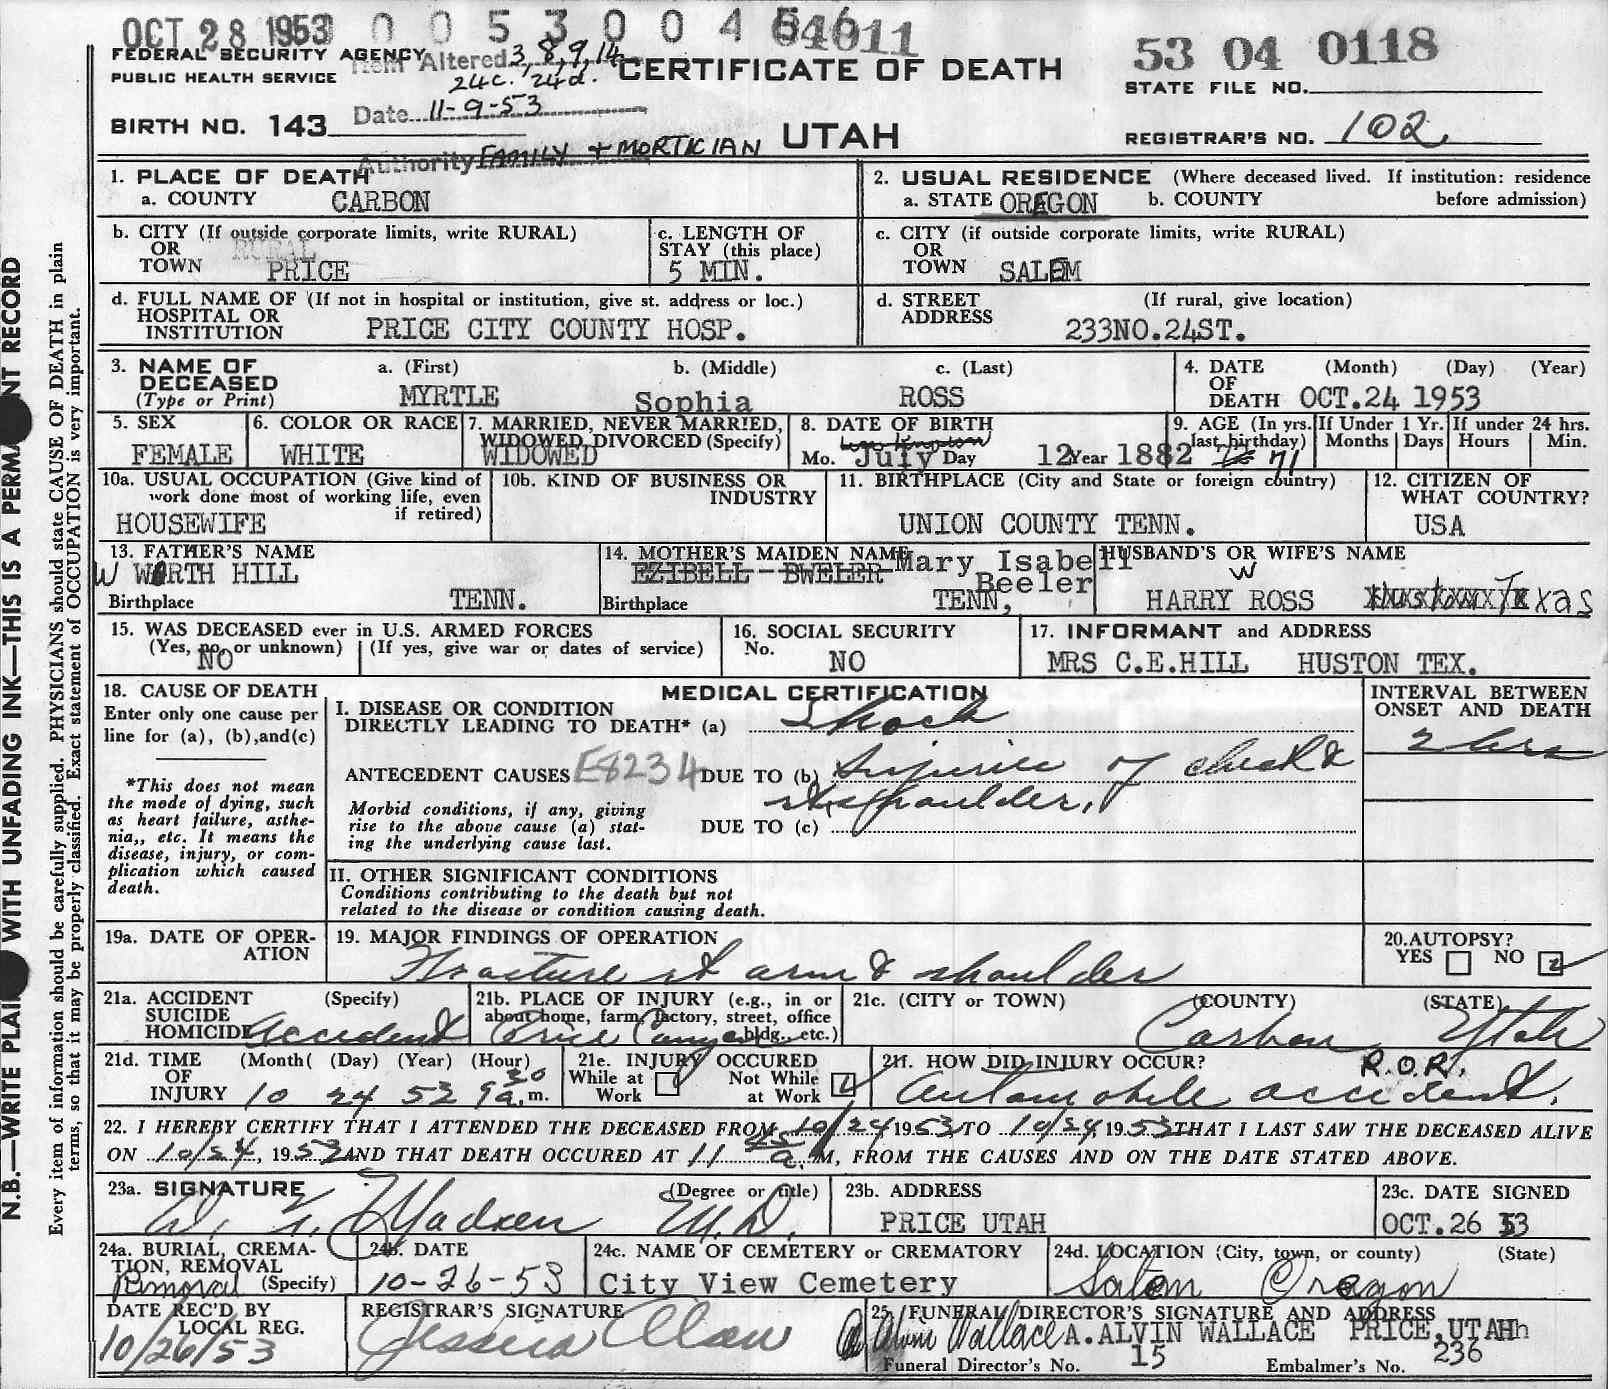 OCT 28 1953 0 0 5 3 0 0 4 5 6
64011
53 04 0118
FEDERAL SECURITY AGENCY
PUBLIC HEALTH SERVICE
Item Altered 3, 8, 9, 14
24c. 24d.
Date 11-9-53
Authority FAMILY + MORTICIAN
CERTIFICATE OF DEATH
UTAH
STATE FILE NO.
BIRTH NO. 143
REGISTRAR'S NO. 102
1. PLACE OF DEATH
a. COUNTY CARBON
2. USUAL RESIDENCE (Where deceased lived. If institution: residence before admission)
a. STATE OREGON b. COUNTY
b. CITY (If outside corporate limits, write RURAL)
OR
TOWN RURAL
PRICE
c. LENGTH OF
STAY (this place)
5 MIN.
c. CITY (if outside corporate limits, write RURAL)
OR
TOWN SALEM
d. FULL NAME OF (If not in hospital or institution, give st. address or loc.)
HOSPITAL OR
INSTITUTION PRICE CITY COUNTY HOSP.
d. STREET (If rural, give location)
ADDRESS
233NO.24ST.
3. NAME OF a. (First) b. (Middle) c. (Last)
DECEASED
(Type or Print) MYRTLE Sophia ROSS
4. DATE (Month) (Day) (Year)
OF
DEATH OCT.24 1953
5. SEX
FEMALE
6. COLOR OR RACE
WHITE
7. MARRIED, NEVER MARRIED,
WIDOWED DIVORCED (Specify)
WIDOWED
8. DATE OF BIRTH
Mo. July Day 12 Year 1882
9. AGE (In yrs. last birthday) 71
If Under 1 Yr. Months Days
If under 24 hrs. Hours Min.
10a. USUAL OCCUPATION (Give kind of
work done most of working life, even
if retired)
HOUSEWIFE
10b. KIND OF BUSINESS OR
INDUSTRY
11. BIRTHPLACE (City and State or foreign country)
UNION COUNTY TENN.
12. CITIZEN OF
WHAT COUNTRY?
USA
13. FATHER'S NAME
W WORTH HILL
Birthplace TENN.
14. MOTHER'S MAIDEN NAME Mary Isabell
EZIBELL BWELER Beeler
Birthplace TENN,
HUSBAND'S OR WIFE'S NAME
W
HARRY ROSS
15. WAS DECEASED ever in U.S. ARMED FORCES
(Yes, no, or unknown) (If yes, give war or dates of service)
NO
16. SOCIAL SECURITY
No.
NO
17. INFORMANT and ADDRESS
MRS C.E.HILL HUSTON TEX.
18. CAUSE OF DEATH
Enter only one cause per
line for (a), (b),and(c)
*This does not mean
the mode of dying, such
as heart failure, asthe-
nia,, etc. It means the
disease, injury, or com-
plication which caused
death.
MEDICAL CERTIFICATION
I. DISEASE OR CONDITION
DIRECTLY LEADING TO DEATH* (a) Shock
ANTECEDENT CAUSES E8234 DUE TO (b) Injuries of chest &
rt shoulder,
Morbid conditions, if any, giving
rise to the above cause (a) stat-
ing the underlying cause last.
DUE TO (c)
INTERVAL BETWEEN
ONSET AND DEATH
2 hrs
II. OTHER SIGNIFICANT CONDITIONS
Conditions contributing to the death but not
related to the disease or condition causing death.
19a. DATE OF OPER-
ATION
19. MAJOR FINDINGS OF OPERATION
Fracture rt arm & shoulder
20.AUTOPSY?
YES NO
21a. ACCIDENT (Specify)
SUICIDE
HOMICIDE Accident
21b. PLACE OF INJURY (e.g., in or
about home, farm, factory, street, office
bldg., etc.)
Price Canyon
21c. (CITY or TOWN) (COUNTY) (STATE)
Carbon Utah
21d. TIME (Month( (Day) (Year) (Hour)
OF
INJURY 10 24 53 9 30 a.m.
21e. INJURY OCCURED
While at
Work
Not While
at Work
21f. HOW DID INJURY OCCUR? R.O.R.
Automobile accident.
22. I HEREBY CERTIFY THAT I ATTENDED THE DECEASED FROM 10/24, 1953, TO 10/24, 1953 THAT I LAST SAW THE DECEASED ALIVE
ON 10/24, 1953 AND THAT DEATH OCCURED AT 11 45 a.M, FROM THE CAUSES AND ON THE DATE STATED ABOVE.
23a. SIGNATURE (Degree or title)
Madsen M.D.
23b. ADDRESS
PRICE UTAH
23c. DATE SIGNED
OCT.26 53
24a. BURIAL, CREMA-
TION, REMOVAL
(Specify)
Removal
24b. DATE
10-26-53
24c. NAME OF CEMETERY or CREMATORY
City View Cemetery
24d. LOCATION (City, town, or county) (State)
Salem Oregon
DATE REC'D BY
LOCAL REG.
10/26/53
REGISTRAR'S SIGNATURE
Jessica Olson
25. FUNERAL DIRECTOR'S SIGNATURE AND ADDRESS
A Alvin Wallace A.ALVIN WALLACE PRICE,UTAH
Funeral Director's No. 15 Embalmer's No. 236
N.B.—WRITE PLAINLY WITH UNFADING INK—THIS IS A PERMANENT RECORD
Every item of information should be carefully supplied. PHYSICIANS should state CAUSE OF DEATH in plain
terms, so that it may be properly classified. Exact statement of OCCUPATION is very important.